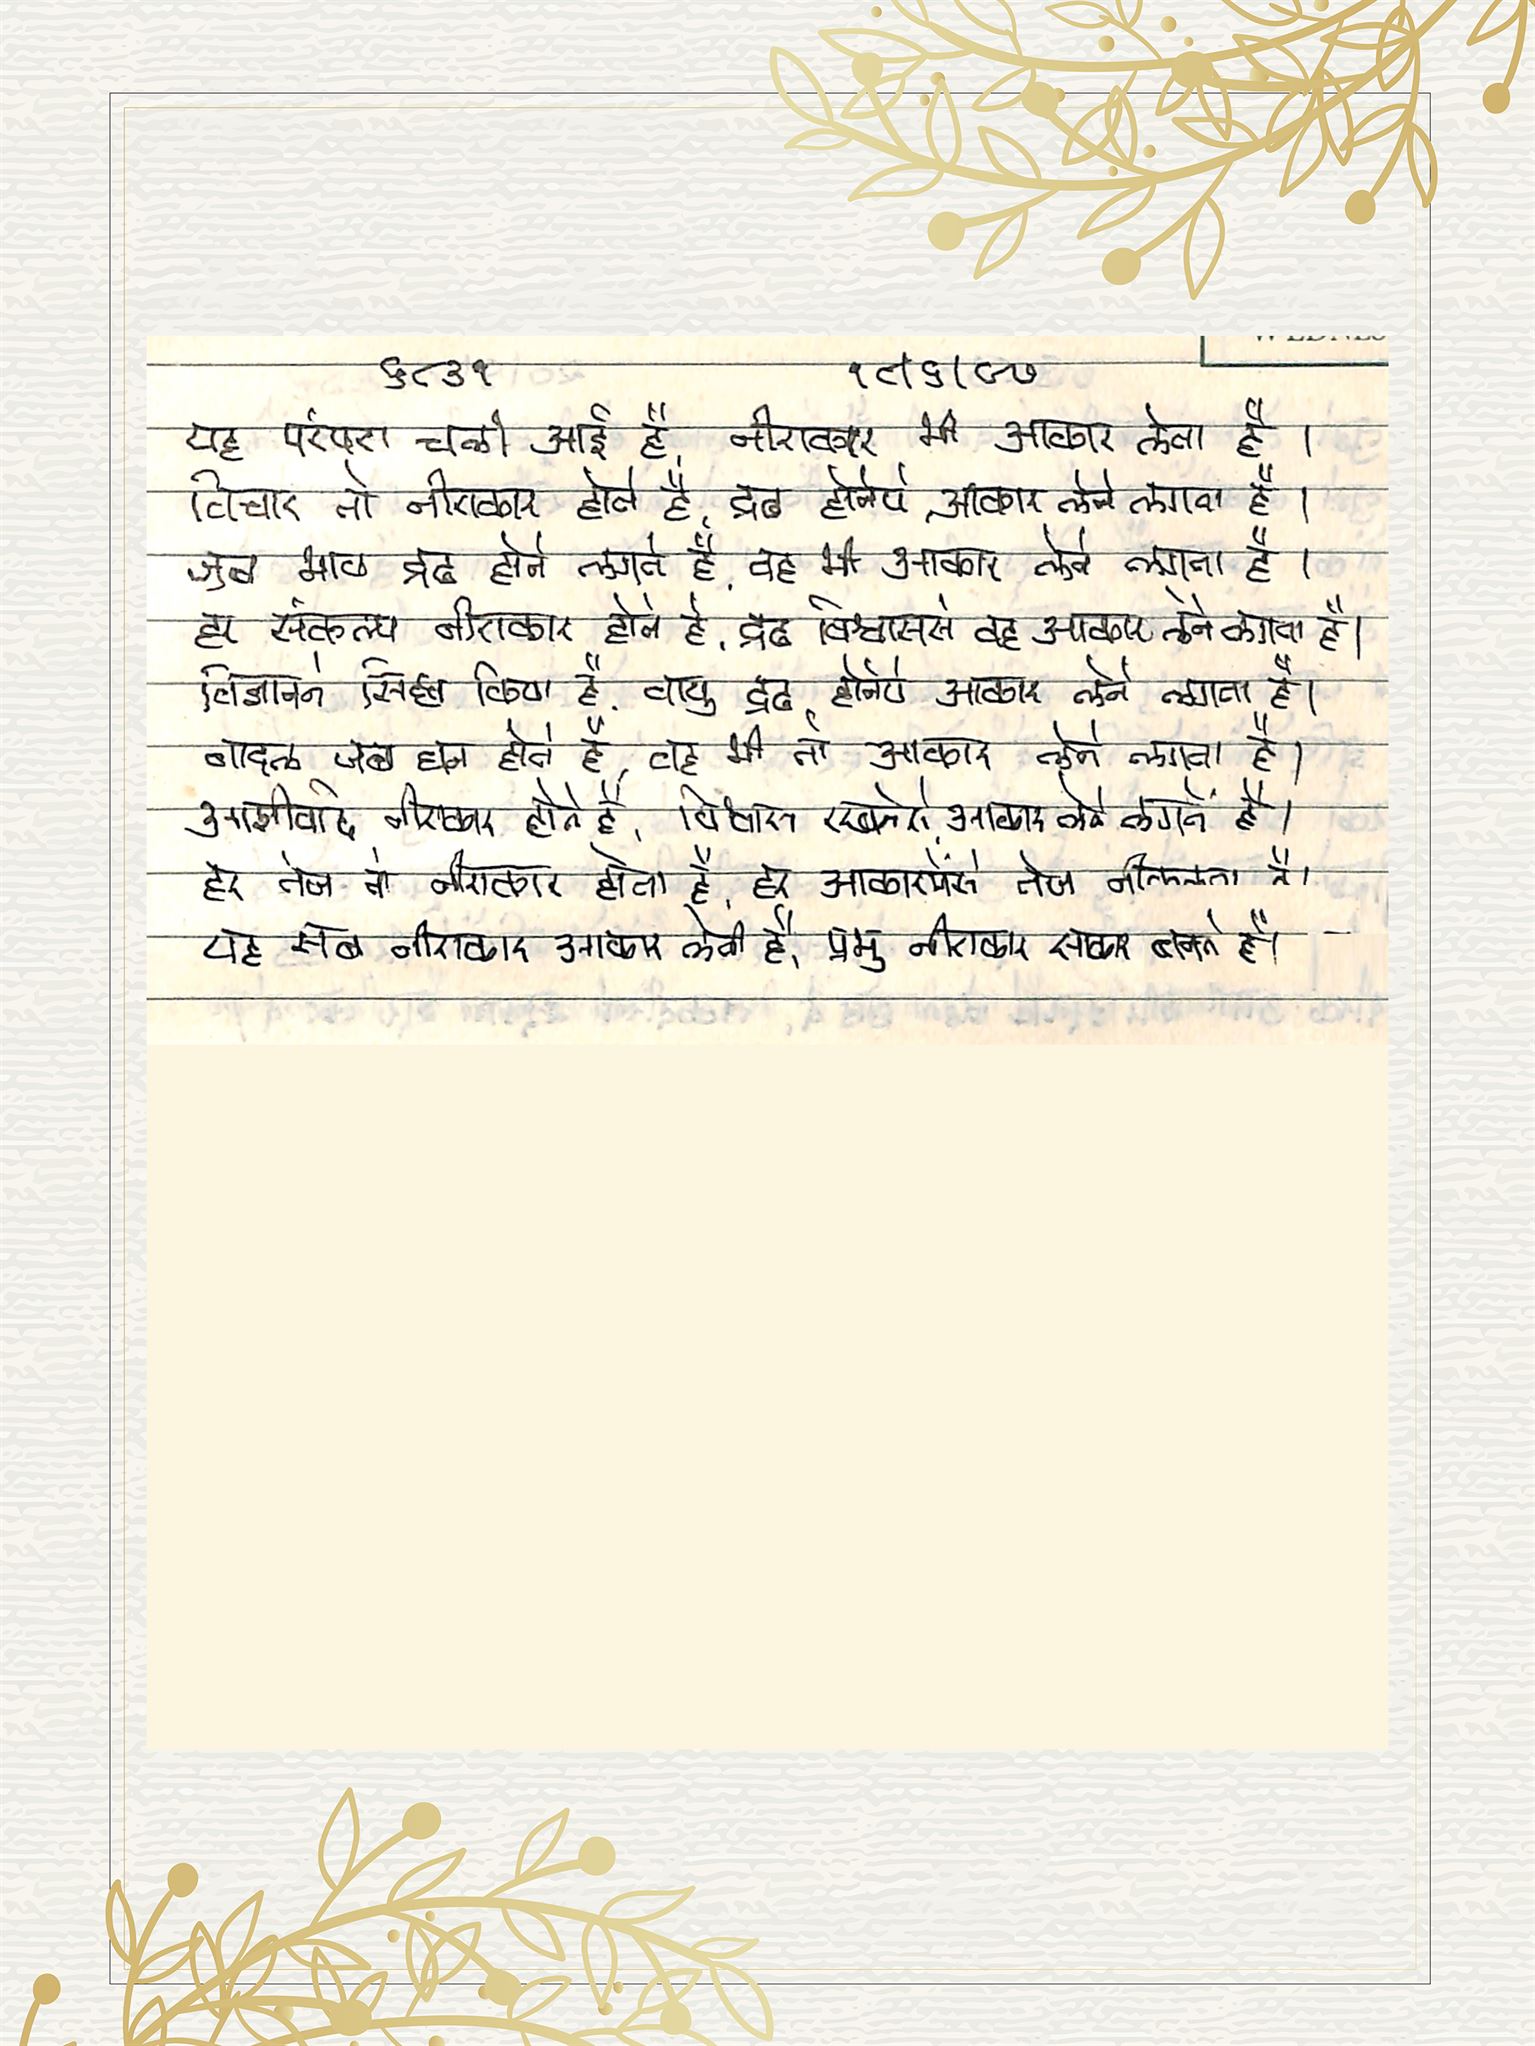 WEDNES
६८३१ १८।६।८७
यह परंपरा चली आई है, नीराकार भी आकार लेता है ।
विचार तो नीराकार होते है, द्रढ होनेपे आकार लेने लगता है ।
जब भाव द्रढ होने लगते है, वह भी आकार लेने लगता है ।
हर संकल्प नीराकार होते है, द्रढ विश्वाससे वह आकार लेने लगता है।
विज्ञानने सिद्ध किया है, वायु द्रढ होनेपे आकार लेने लगता है।
बादल जब घन होते है, वह भी तो आकार लेने लगता है।
आशीर्वाद नीराकार होते है, विश्वास रखनेसे आकार लेने लगते है।
हर तेज तो नीराकार होता है, हर आकारमेंसे तेज नीकलता है।
यह सब नीराकार आकार लेती है, प्रभु नीराकार साकार बनते है।